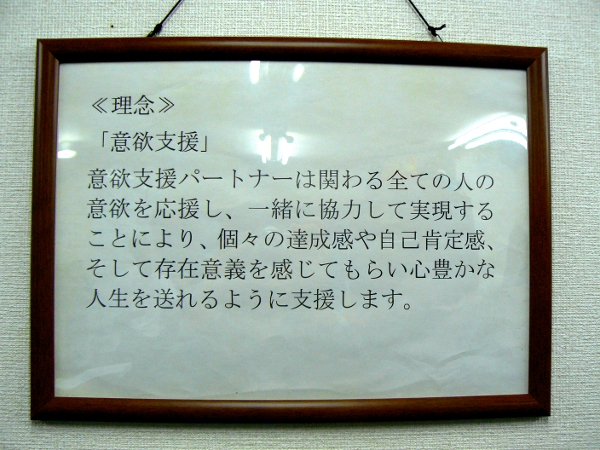 ≪理念≫
「意欲支援」
意欲支援パートナーは関わる全ての人の
意欲を応援し、一緒に協力して実現する
ことにより、個々の達成感や自己肯定感、
そして存在意義を感じてもらい心豊かな
人生を送れるように支援します。